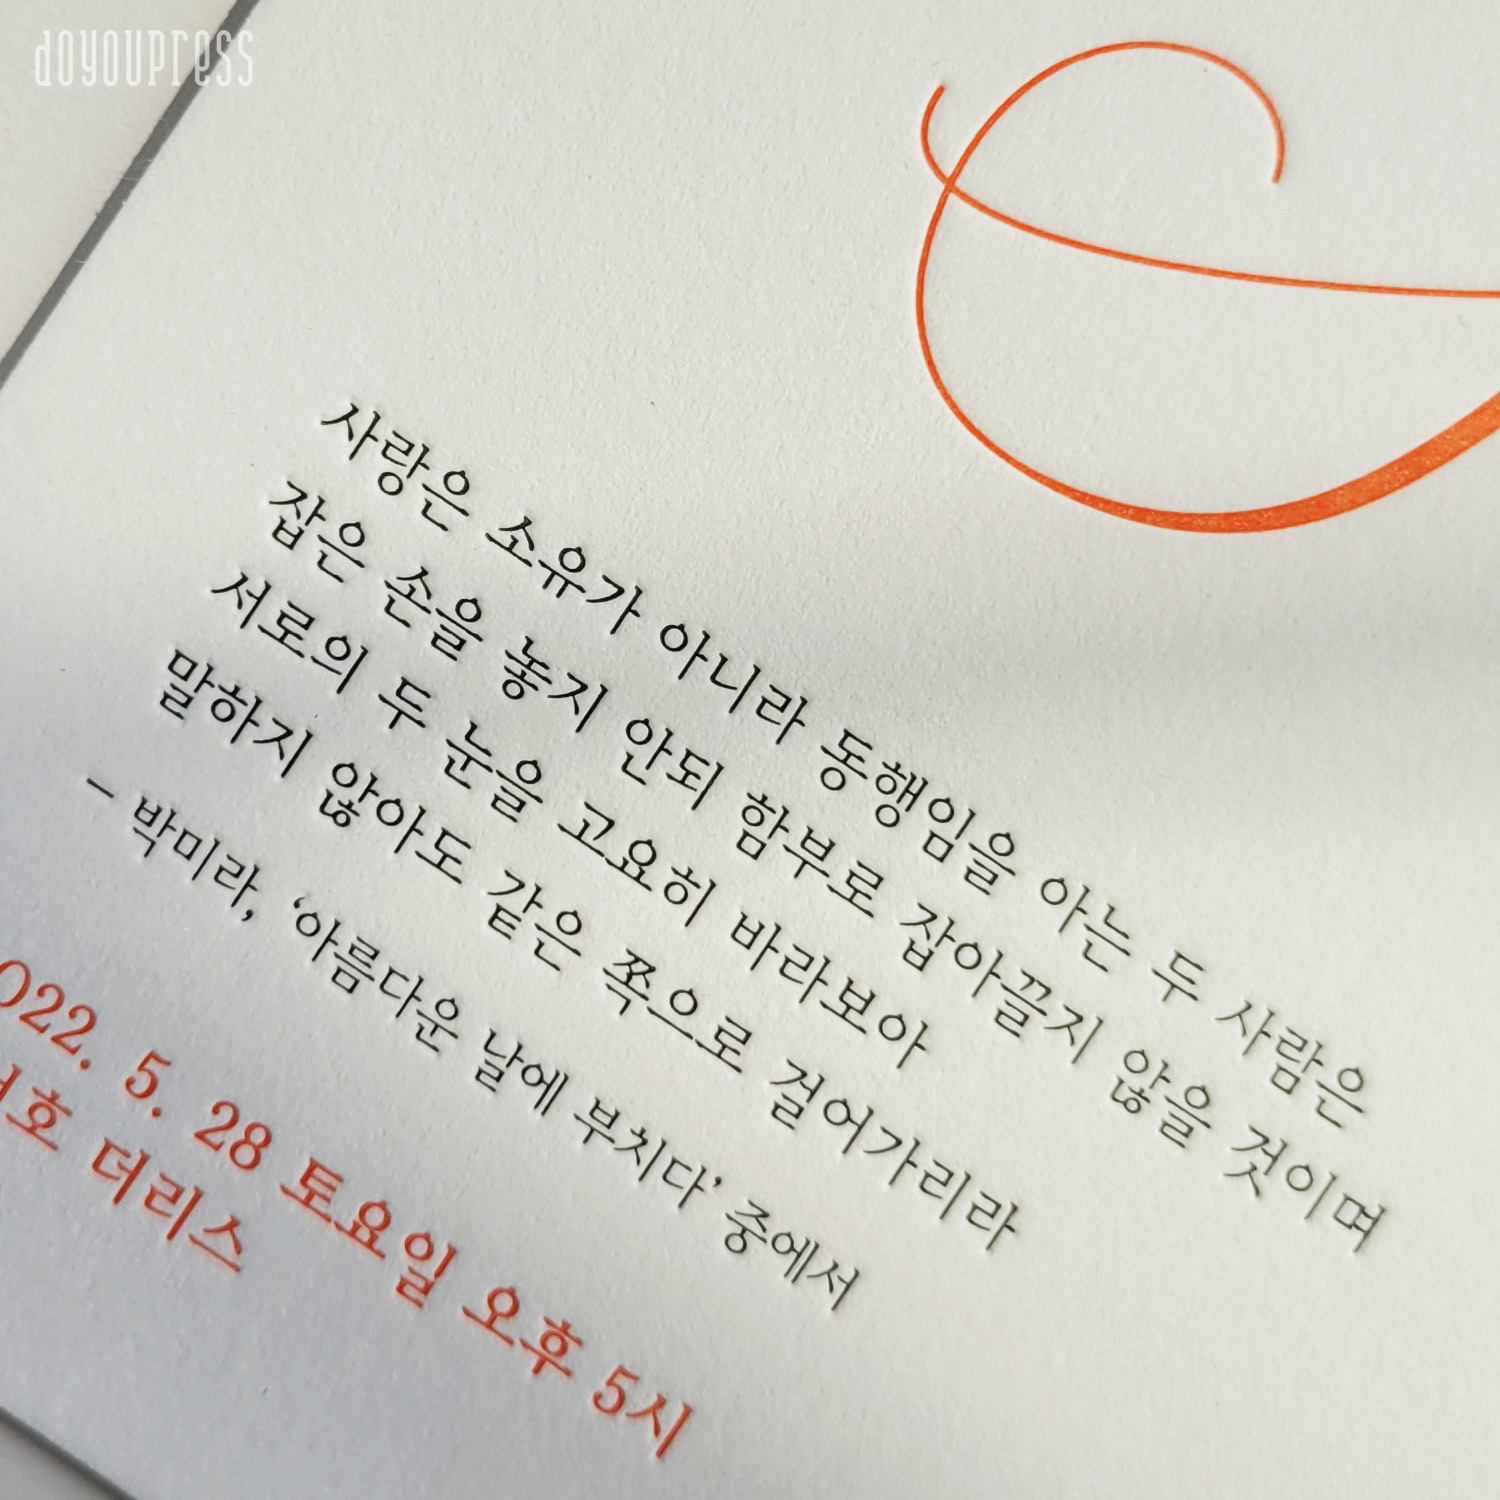 doyoupress
사랑은 소유가 아니라 동행임을 아는 두 사람은
잡은 손을 놓지 안되 함부로 잡아끌지 않을 것이며
서로의 두 눈을 고요히 바라보아
말하지 않아도 같은 쪽으로 걸어가리라
- 박미라, ‘아름다운 날에 부치다’ 중에서
022. 5. 28 토요일 오후 5시
더리스